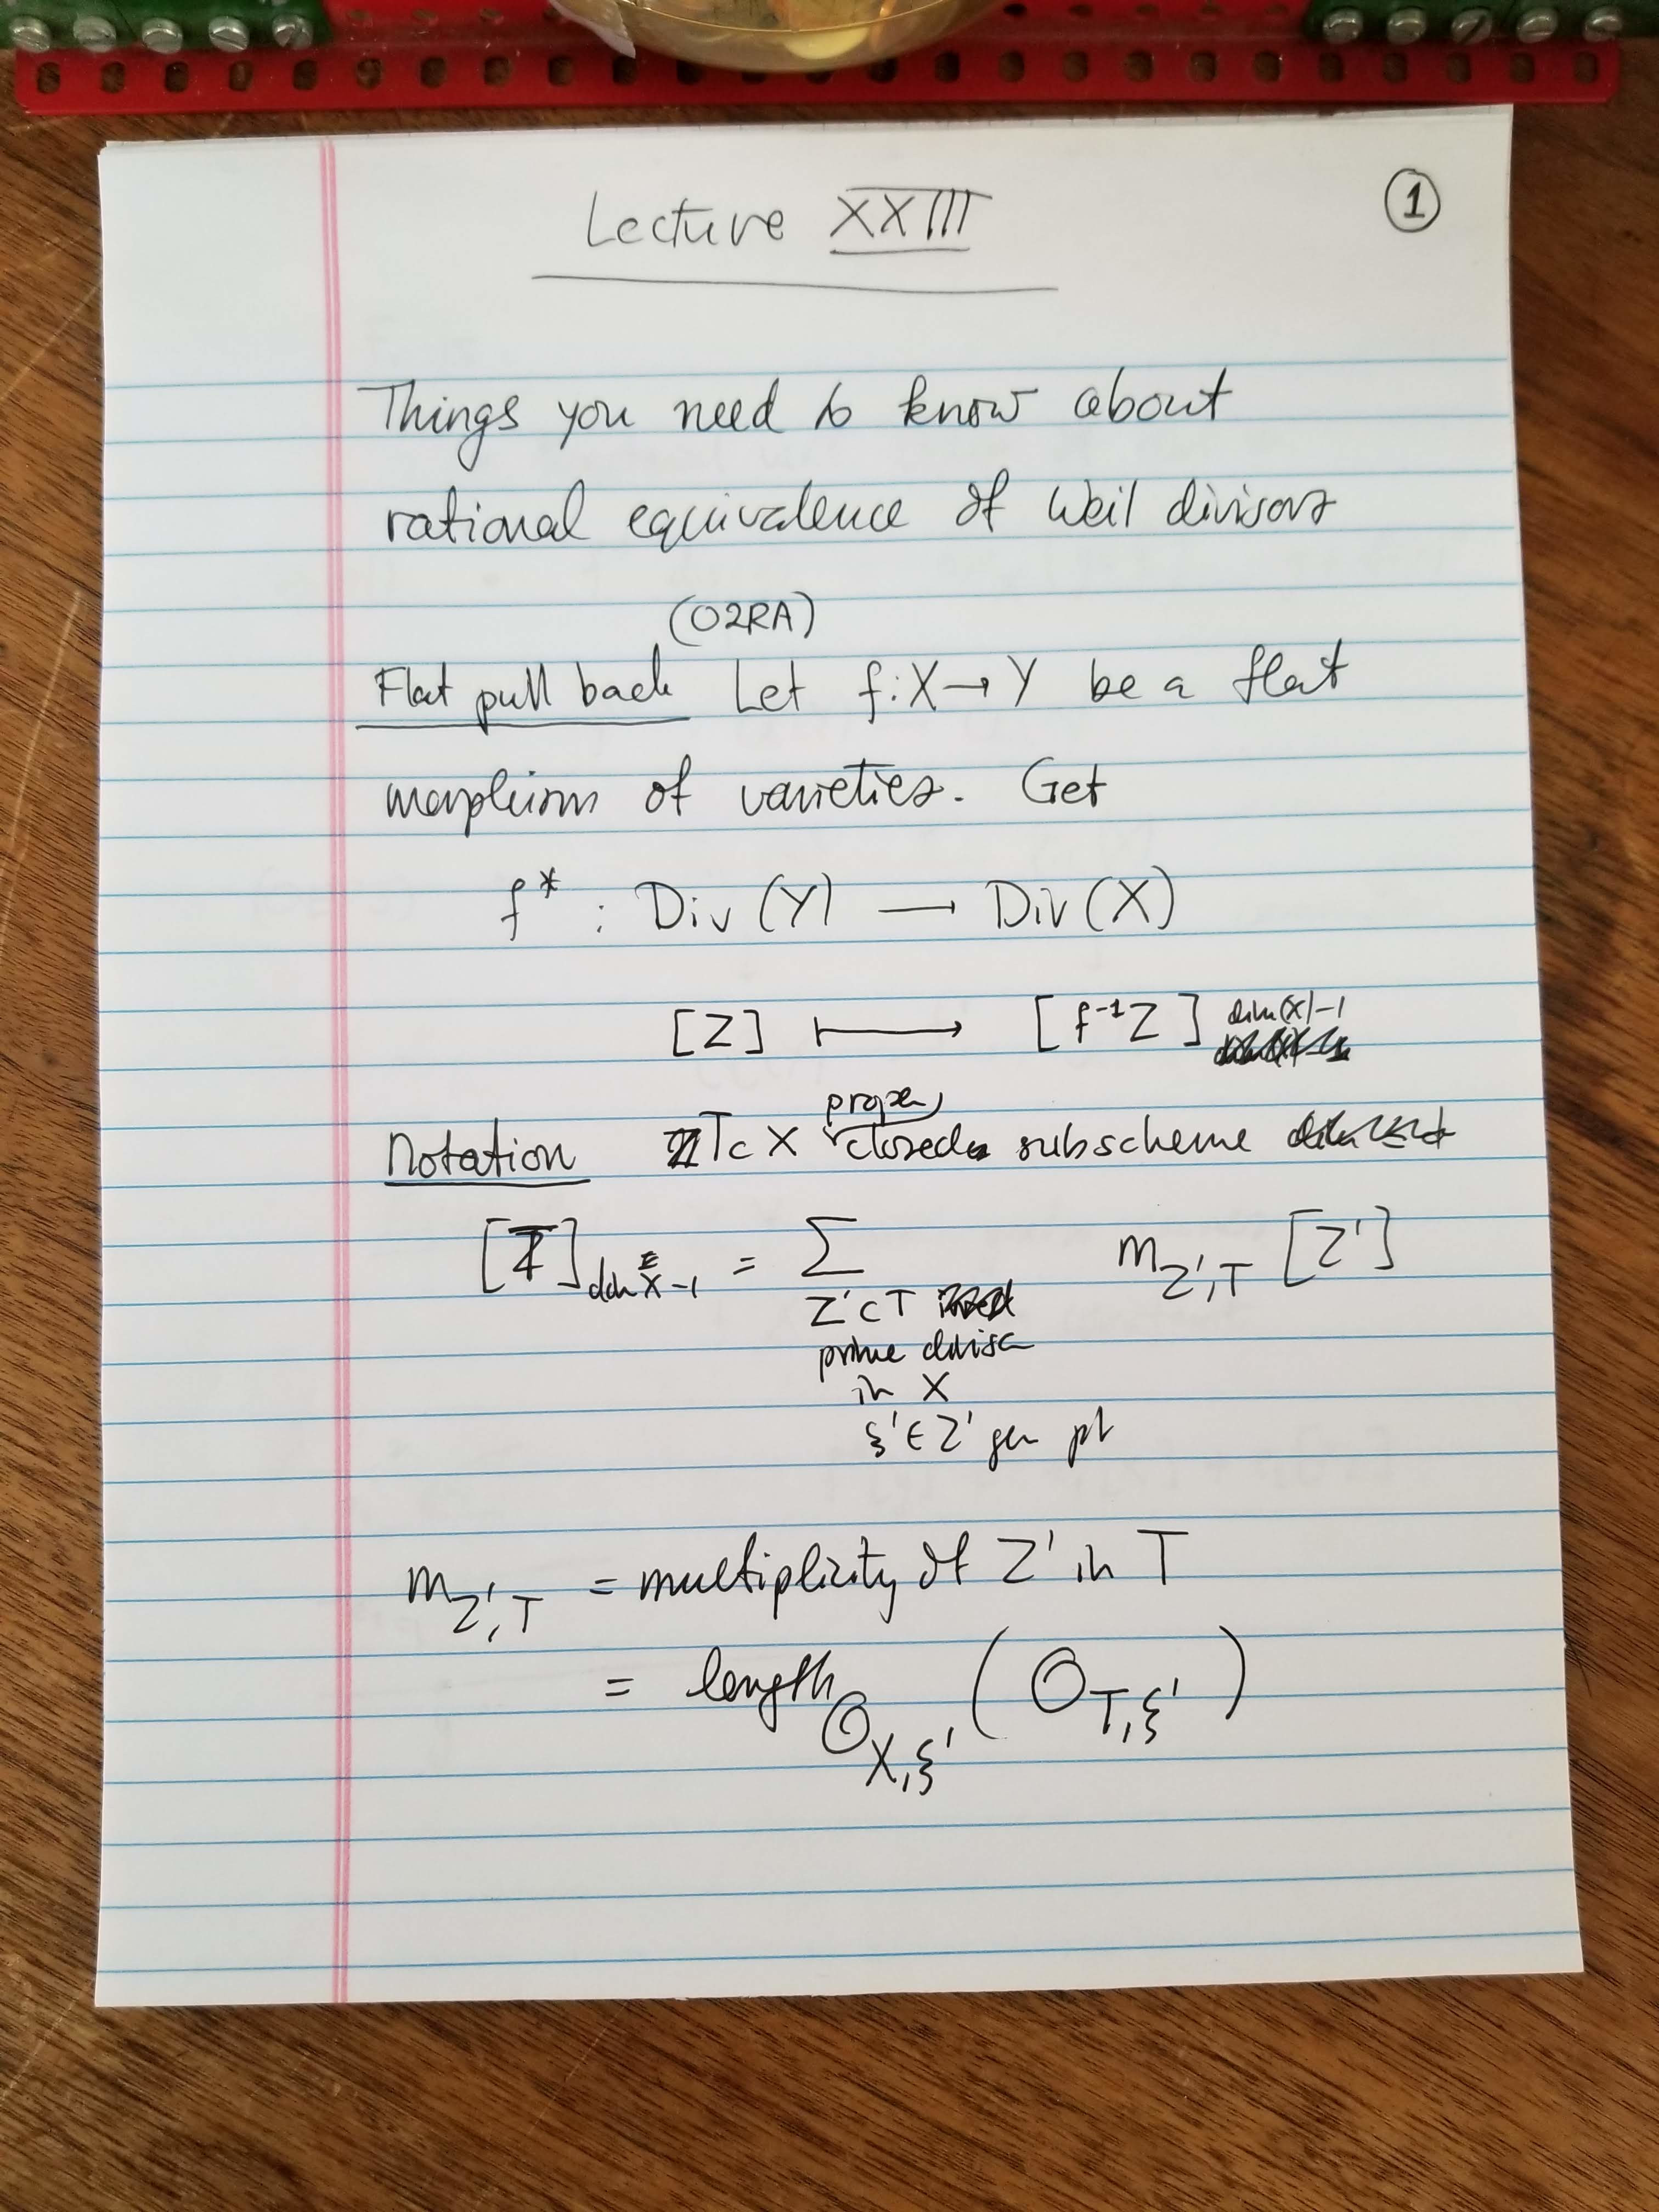 Lecture XXIII
①
Things you need to know about
rational equivalence of Weil divisors
(02RA)
Flat pull back Let f: X → Y be a flat
morphism of varieties. Get
f* : Div(Y) → Div(X)
[Z] ⟼ [f⁻¹Z] dim(X)-1
proper
Notation T ⊂ X closed subscheme
[T] dim X -1 = Σ m_{Z',T} [Z']
Z' ⊂ T
prime divisor
in X
ξ' ∈ Z' gen pt
m_{Z',T} = multiplicity of Z' in T
= length_{O_{X,ξ'}} (O_{T,ξ'})